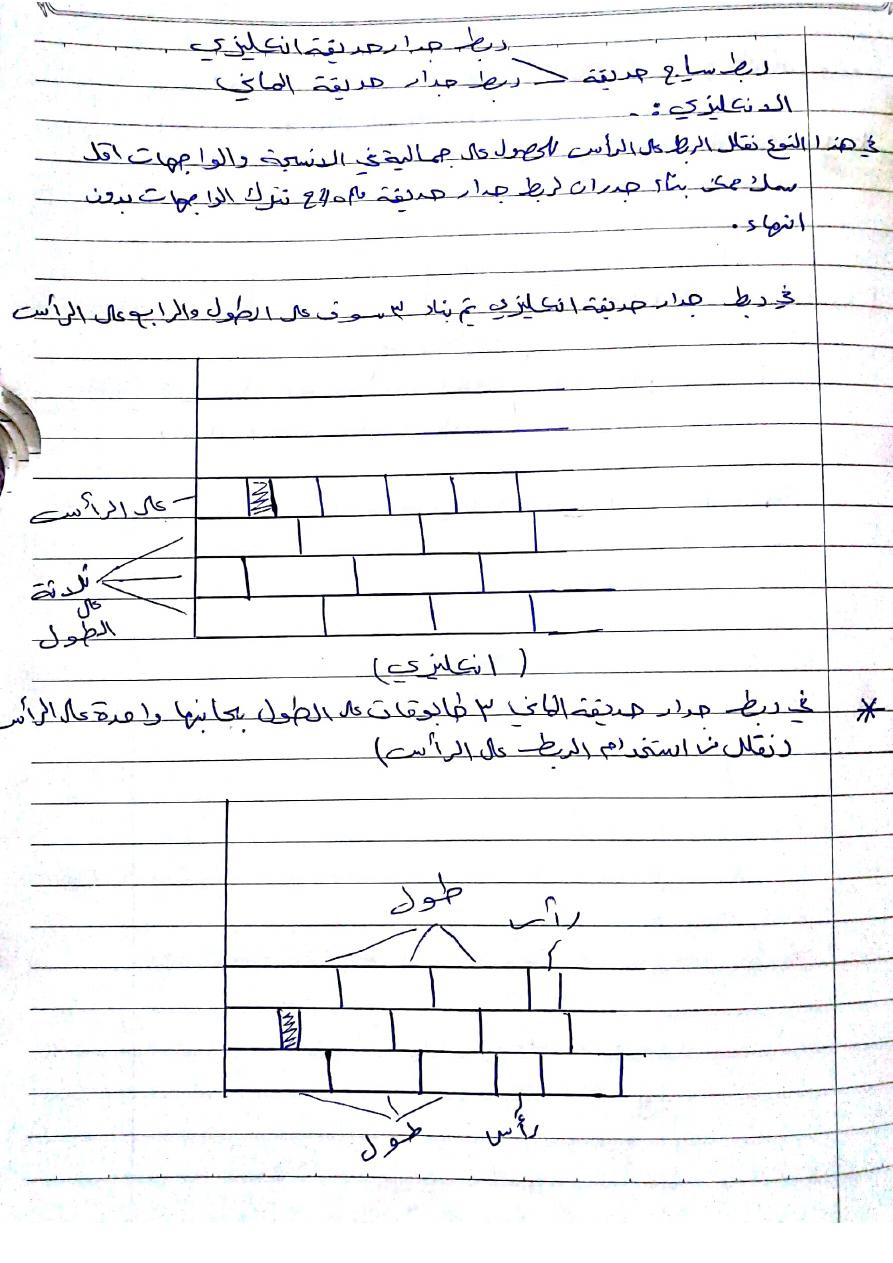 ربط جدار حديقة انكليزي
ربط سياج حديقة
ربط جدار حديقة الماني
الانكليزي :-
في هذا النوع نقلل الربط على الرأس للحصول على جمالية في الانسجة والواجهات اقل
سمك ممكن بناء جدران لربط جدار حديقة 24cm تترك الواجهات بدون
انهاء.
في ربط جدار حديقة انكليزي يتم بناء ٣ سوف على الطول والرابع على الرأس
على الرأس
ثلاثة
على
الطول
(انكليزي)
* في ربط جدار حديقة الماني ٣ طابوقات على الطول بجانبها واحدة على الرأس
(نقلل من استخدام الربط على الرأس)
طول
رأس
طول
رأس